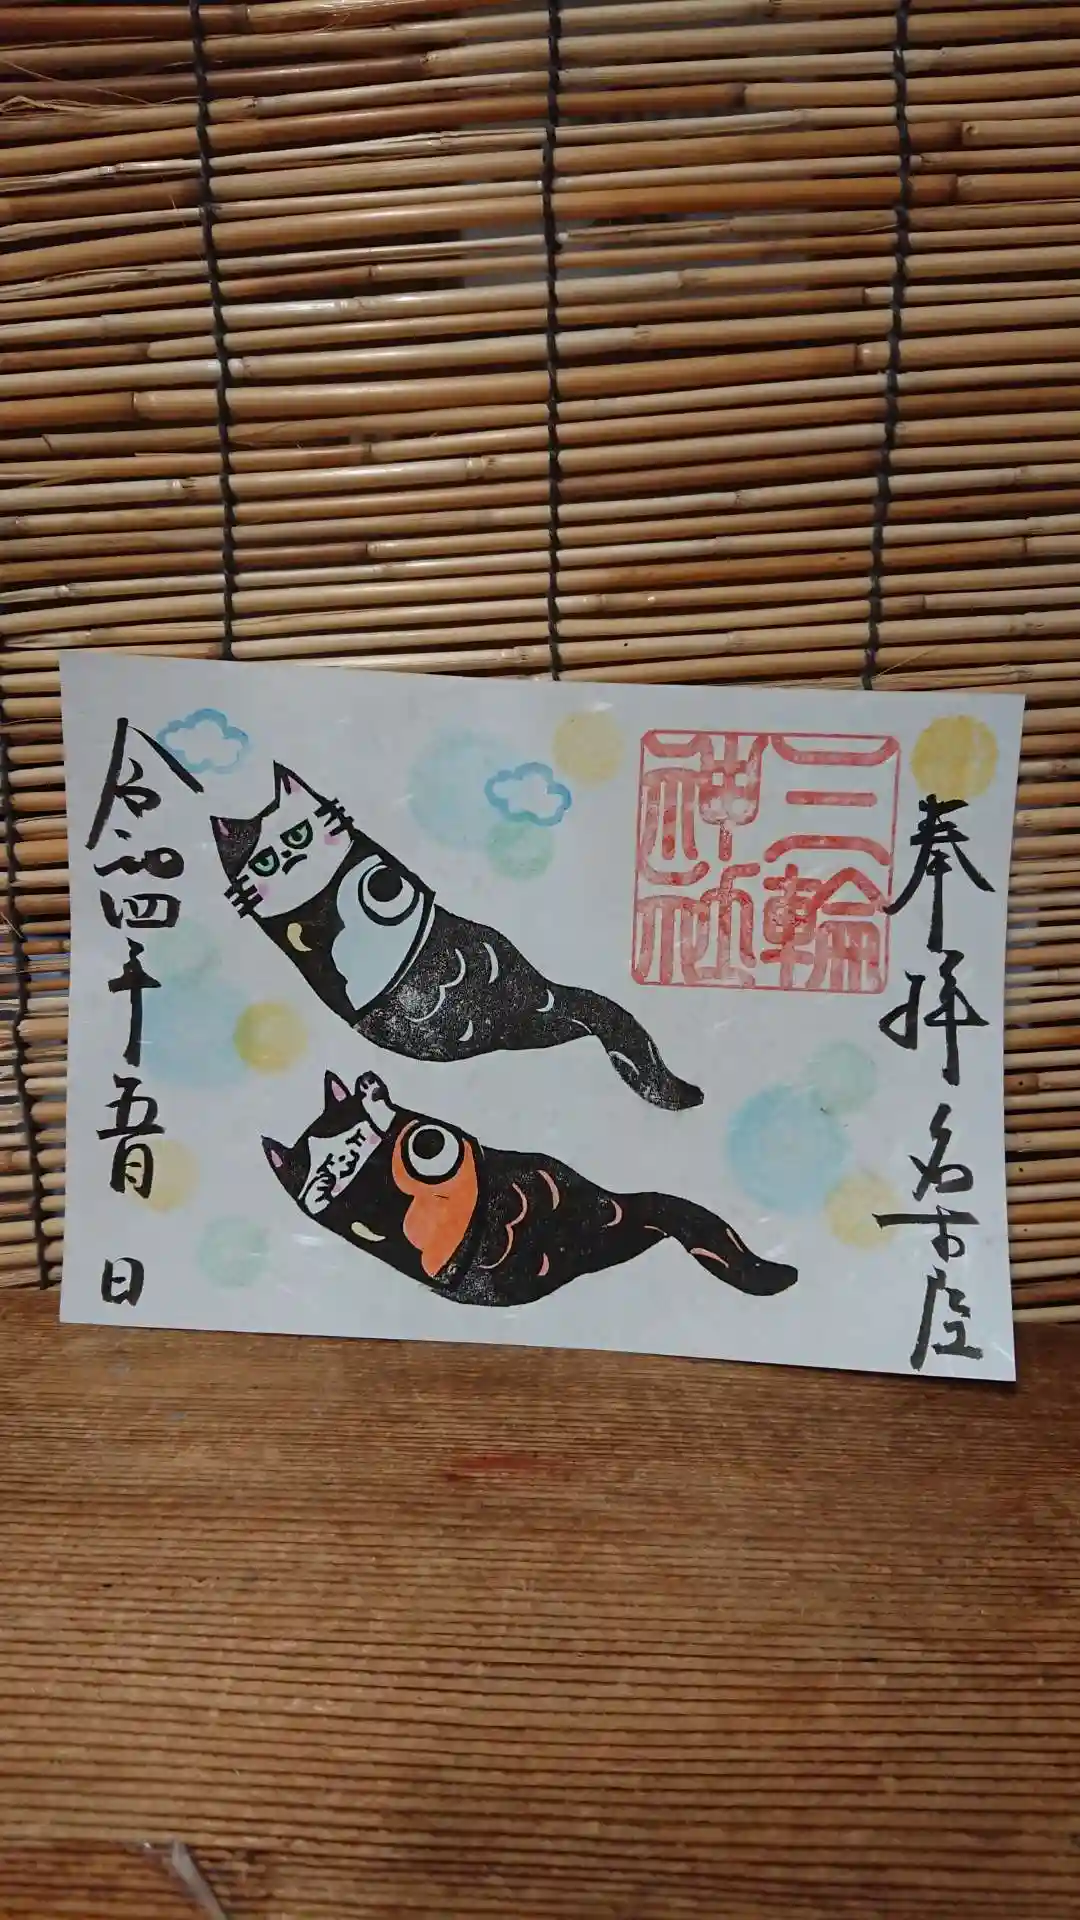 奉拝 名古屋
三輪
神社
令和四年五月 日